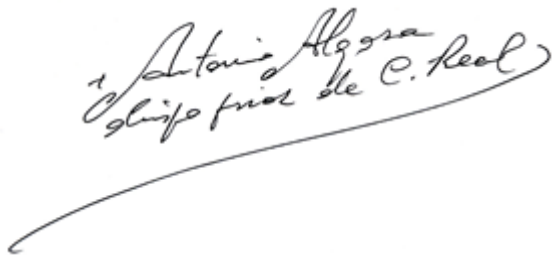 + Antonio Algora
obispo prior de C. Real